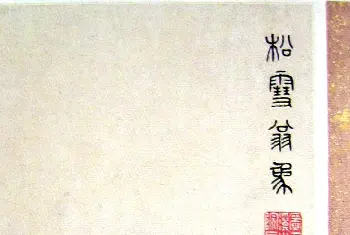 松雪翁象